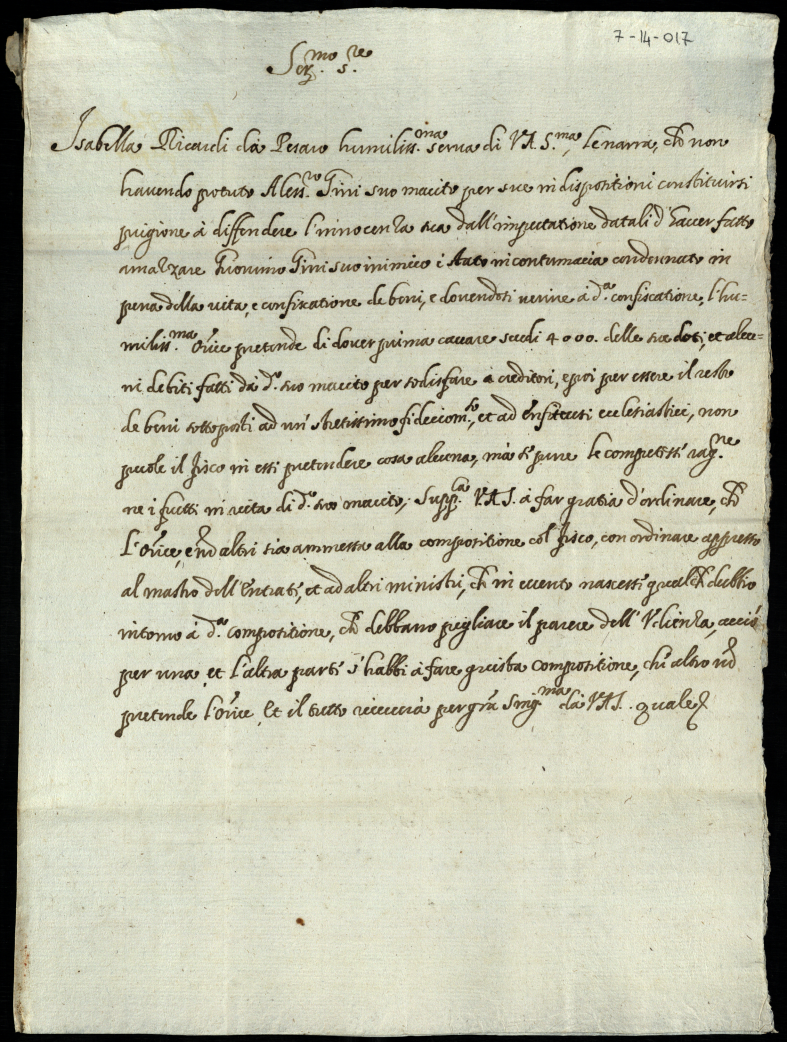 7-14-017
Ser.mo S.re
Isabella Ricardi da Pesaro humiliss.ma serva di V.A. S.ma, le narra, ch non
havendo potuto Aless.ro Tini suo marito per sue indispositioni constituirsi
prigione à diffendere l'innocenza sua dall'imputatione datali d'haver fatto
amazzare Tini suo inimico è stato in contumacia condennato in
pena della vita, e confiscatione de beni, e dovendosi venire à d.a confiscatione, l'hu=
miliss.ma Or.ice pretende di dover prima cavare scudi 4000. delle sue doti, et alcu=
ni debiti fatti dà d.o suo marito per sodisfare a creditori, e poi per essere il resto
de beni sottoposti ad un' strettissimo fideicom.so, et ad enfiteusi ecclesiastici, non
puole il fisco in essi pretendere cosa alcuna, mà se pure le competesse rag.ne
ne i frutti in vita di d.o suo marito; supp.ca V.A.S. à far gratia d'ordinare, ch
l'Or.ice, e nō altri sia ammessa alla compositione col fisco, con ordinare appresso
al mastro dell'Entrate, et ad altri ministri, ch in evento nascesse qualch dubbio
intorno à d.a compositione, ch debbano pigliare il parere dell'Udienza, acciò
per una, et l'altra parte s'habbi à fare giusta compositione, che altro nō
pretende l'Or.ice, Et il tutto riceverà per gra sing.ma dà V.A.S. quale